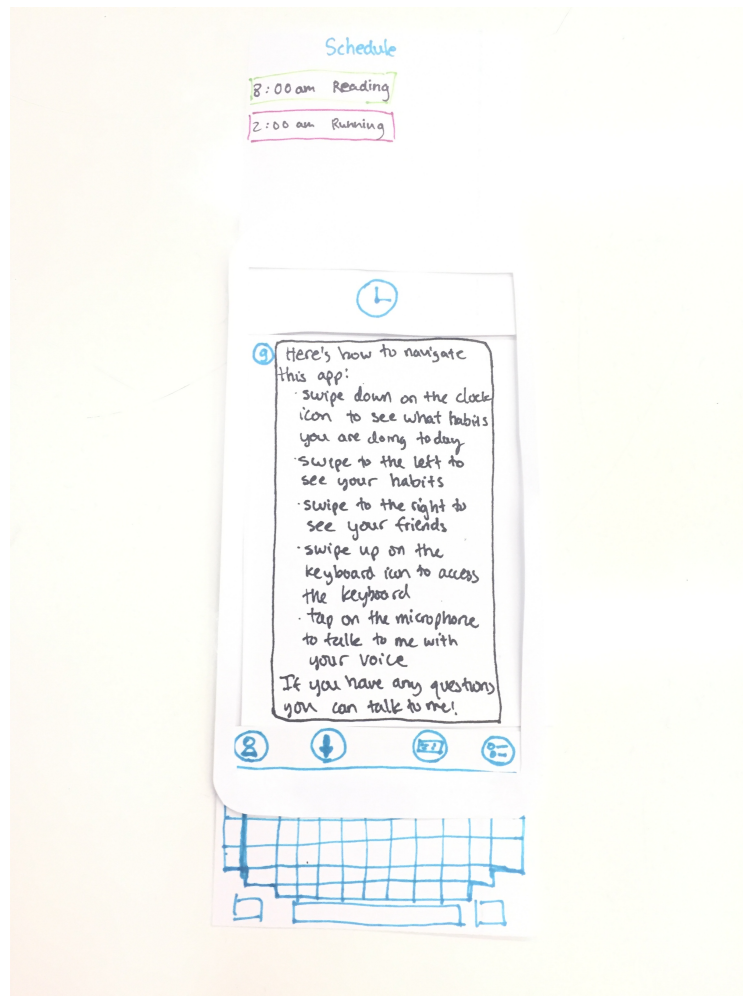 Schedule
8:00 am Reading
2:00 am Running
g Here's how to navigate
this app:
· swipe down on the clock
icon to see what habits
you are doing today
· swipe to the left to
see your habits
· swipe to the right to
see your friends
· swipe up on the
keyboard icon to access
the keyboard
· tap on the microphone
to talk to me with
your voice
If you have any questions
you can talk to me!